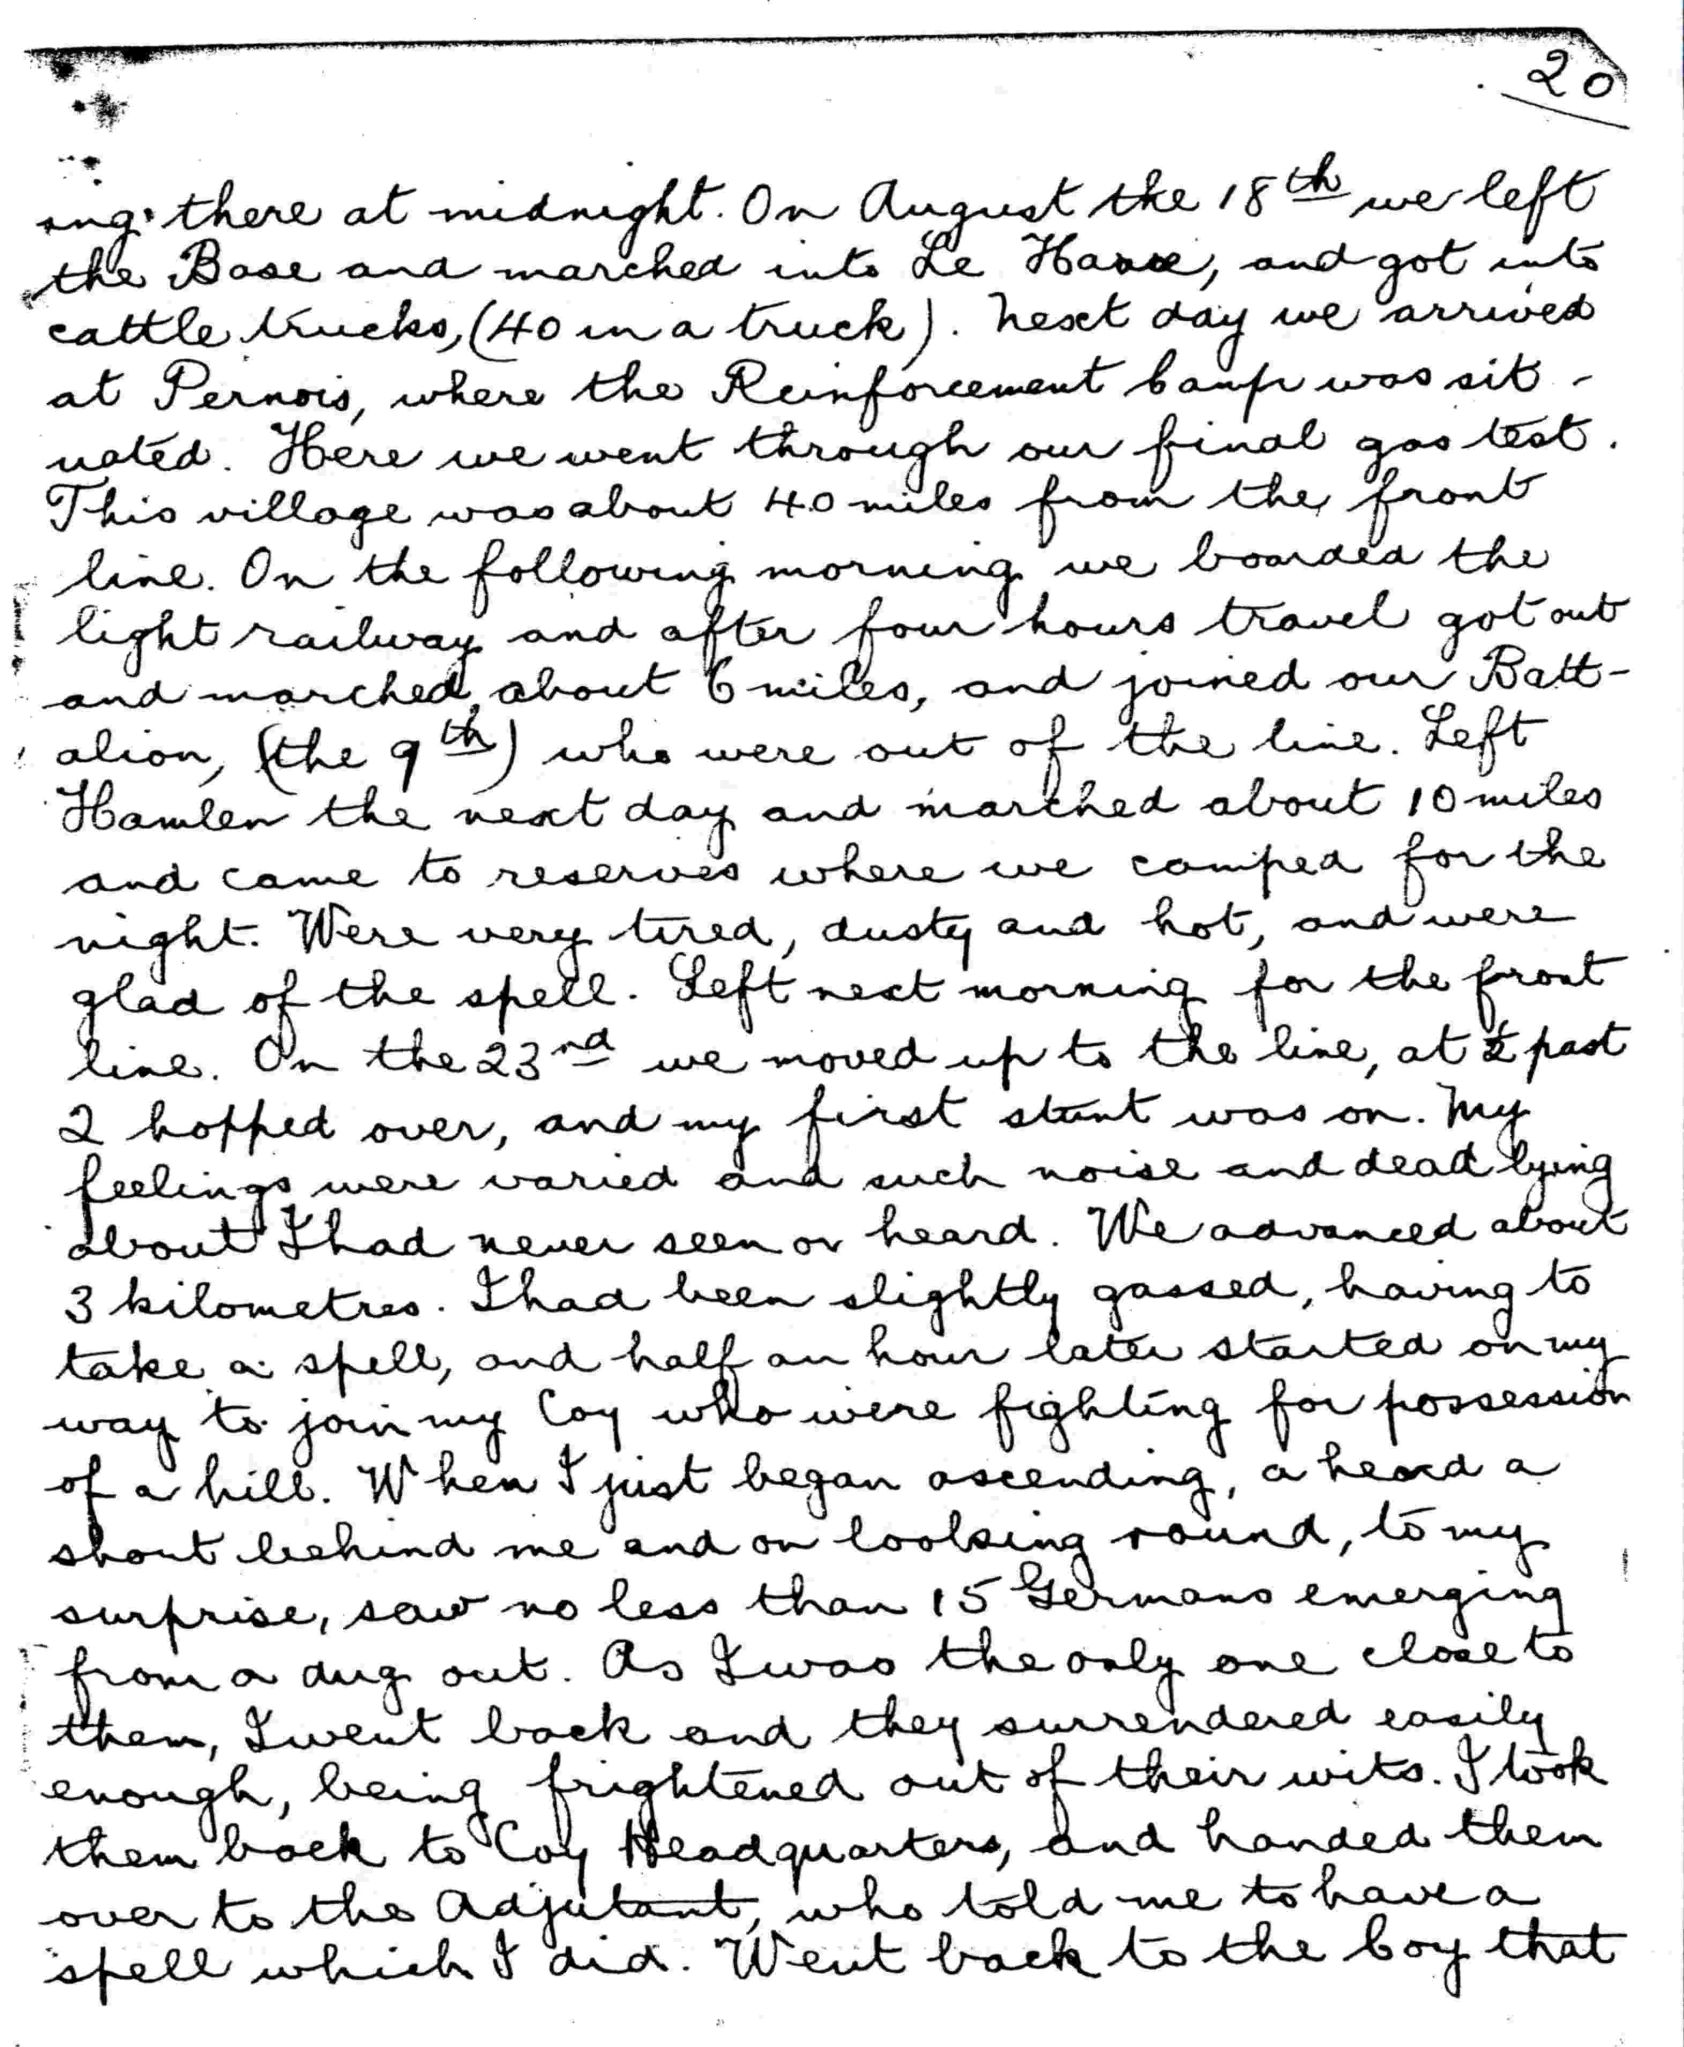 20
ing there at midnight. On August the 18th we left
the Base and marched into Le Havre, and got into
cattle trucks, (40 in a truck). Next day we arrived
at Pernois, where the Reinforcement Camp was sit-
uated. Here we went through our final gas test.
This village was about 40 miles from the front
line. On the following morning we boarded the
light railway and after four hours travel got out
and marched about 6 miles, and joined our Batt-
alion, (the 9th) who were out of the line. Left
Hamlen the next day and marched about 10 miles
and came to reserves where we camped for the
night. Were very tired, dusty and hot, and were
glad of the spell. Left next morning for the front
line. On the 23rd we moved up to the line, at ½ past
2 hopped over, and my first stunt was on. My
feelings were varied and such noise and dead lying
about I had never seen or heard. We advanced about
3 kilometres. I had been slightly gassed, having to
take a spell, and half an hour later started on my
way to join my Coy who were fighting for possession
of a hill. When I just began ascending, a heard a
shout behind me and on looking round, to my
surprise, saw no less than 15 Germans emerging
from a dug out. As I was the only one close to
them, I went back and they surrendered easily
enough, being frightened out of their wits. I took
them back to Coy Headquarters, and handed them
over to the Adjutant, who told me to have a
spell which I did. Went back to the Coy that